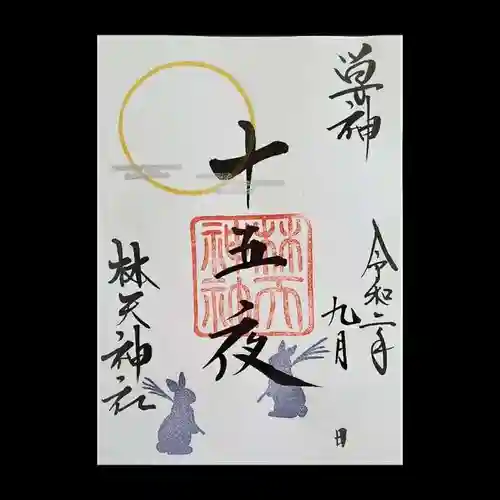 学神
令和二年
九月 日
十五夜
林天神社
林天神社